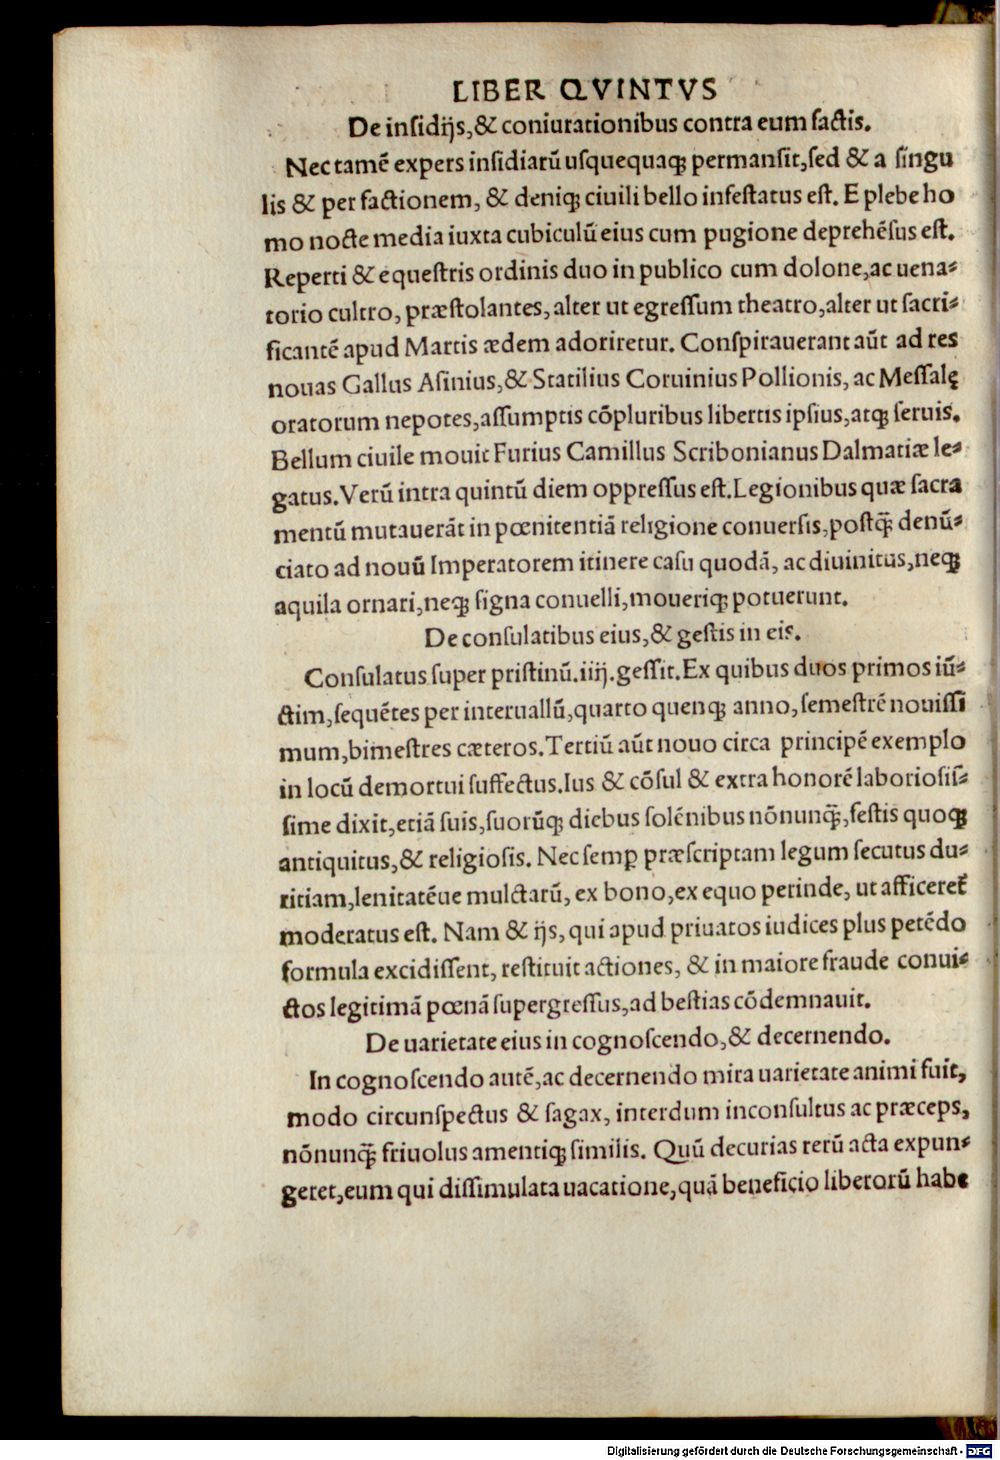 LIBER QVINTVS
De insidijs,& coniurationibus contra eum factis.
Nec tamē expers insidiarū usquequaq; permansit,sed & a singu
lis & per factionem, & deniq; ciuili bello infestatus est. E plebe ho
mo nocte media iuxta cubiculū eius cum pugione deprehēsus est.
Reperti & equestris ordinis duo in publico cum dolone,ac uena-
torio cultro, præstolantes, alter ut egressum theatro,alter ut sacri-
ficantē apud Martis ædem adoriretur. Conspirauerant aūt ad res
nouas Gallus Asinius,& Statilius Coruinius Pollionis, ac Messalę
oratorum nepotes,assumptis cōpluribus libertis ipsius,atq; seruis.
Bellum ciuile mouit Furius Camillus Scribonianus Dalmatiæ le-
gatus.Verū intra quintū diem oppressus est.Legionibus quæ sacra
mentū mutauerāt in pœnitentiā religione conuersis,postq̄ denū-
ciato ad nouū Imperatorem itinere casu quodā, ac diuinitus,neq;
aquila ornari,neq; signa conuelli,moueriq; potuerunt.
De consulatibus eius,& gestis in eis.
Consulatus super pristinū.iiij.gessit.Ex quibus duos primos iū-
ctim,sequētes per interuallū,quarto quenq; anno,semestrē nouissi
mum,bimestres cæteros.Tertiū aūt nouo circa principē exemplo
in locū demortui suffectus.Ius & cōsul & extra honorē laboriosis-
sime dixit,etiā suis,suorūq; diebus solēnibus nōnunq̄,festis quoq;
antiquitus,& religiosis. Nec semꝑ præscriptam legum secutus du-
ritiam,lenitatēue mulctarū, ex bono,ex equo perinde, ut afficeret̄
moderatus est. Nam & ijs, qui apud priuatos iudices plus petēdo
formula excidissent, restituit actiones, & in maiore fraude conui-
ctos legitimā pœnā supergressus,ad bestias cōdemnauit.
De uarietate eius in cognoscendo,& decernendo.
In cognoscendo autē,ac decernendo mira uarietate animi fuit,
modo circunspectus & sagax, interdum inconsultus ac præceps,
nōnunq̄ friuolus amentiq; similis. Quū decurias rerū acta expun-
geret,eum qui dissimulata uacatione,quā beneficio liberorū habe
Digitalisierung gefördert durch die Deutsche Forschungsgemeinschaft - DFG